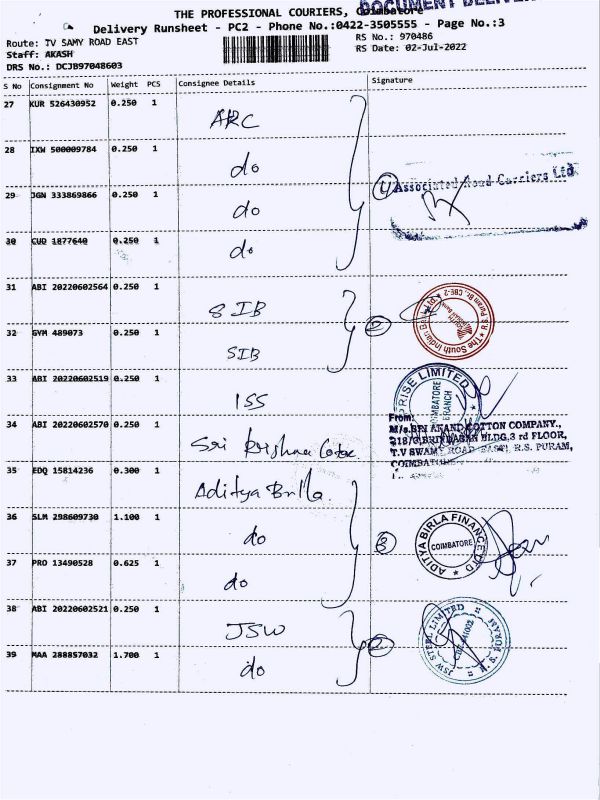 DOCUMENT DELIVER
THE PROFESSIONAL COURIERS, Coimbatore
Delivery Runsheet - PC2 - Phone No.:0422-3505555 - Page No.:3
Route: TV SAMY ROAD EAST
RS No.: 970486
Staff: AKASH
RS Date: 02-Jul-2022
DRS No.: DCJB97048603
S No Consignment No Weight PCS Consignee Details Signature
27 KUR 526430952 0.250 1 ARC
28 IXW 500009784 0.250 1 do
4 Associated Road Carriers Ltd
29 JGN 333869866 0.250 1 do
30 CUD 1877640 0.250 1 do
31 ABI 20220602564 0.250 1 SIB
2 The South Indian Bank
32 GYM 489073 0.250 1 SIB
33 ABI 20220602519 0.250 1 ISS
PRISE LIMITED
COIMBATORE
BRANCH
34 ABI 20220602570 0.250 1 Sri Krishna
From:
M/s.SRI ANAND COTTON COMPANY.,
BLDG,3 rd FLOOR,
T.V SWAMY ROAD (EAST) R.S. PURAM,
35 EDQ 15814236 0.300 1 Aditya Birla
36 SLM 298609730 1.100 1 do
3 ADITYA BIRLA FINANCE LTD
COIMBATORE
37 PRO 13490528 0.625 1 do
38 ABI 20220602521 0.250 1 JSW
2 JSW STEEL LIMITED
R. S. PURAM
39 MAA 288857032 1.700 1 do